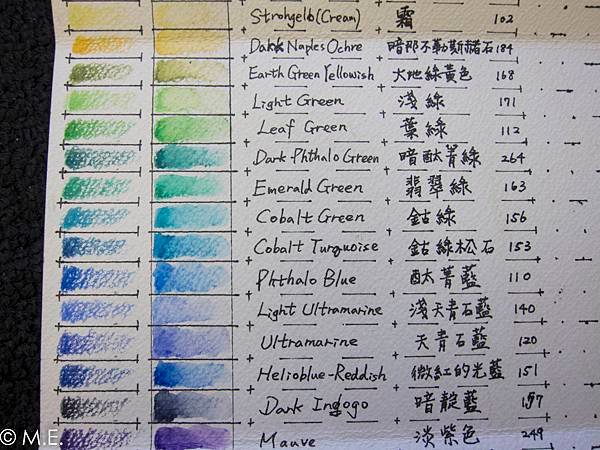 Strohgelb(Cream) 霜 102
Dark Naples Ochre 暗那不勒斯赭石 184
Earth Green Yellowish 大地綠黃色 168
Light Green 淺綠 171
Leaf Green 葉綠 112
Dark Phthalo Green 暗酞菁綠 264
Emerald Green 翡翠綠 163
Cobalt Green 鈷綠 156
Cobalt Turquoise 鈷綠松石 153
Phthalo Blue 酞菁藍 110
Light Ultramarine 淺天青石藍 140
Ultramarine 天青石藍 120
Helioblue-Reddish 微紅的光藍 151
Dark Indogo 暗靛藍 157
Mauve 淡紫色 249
© M.E.